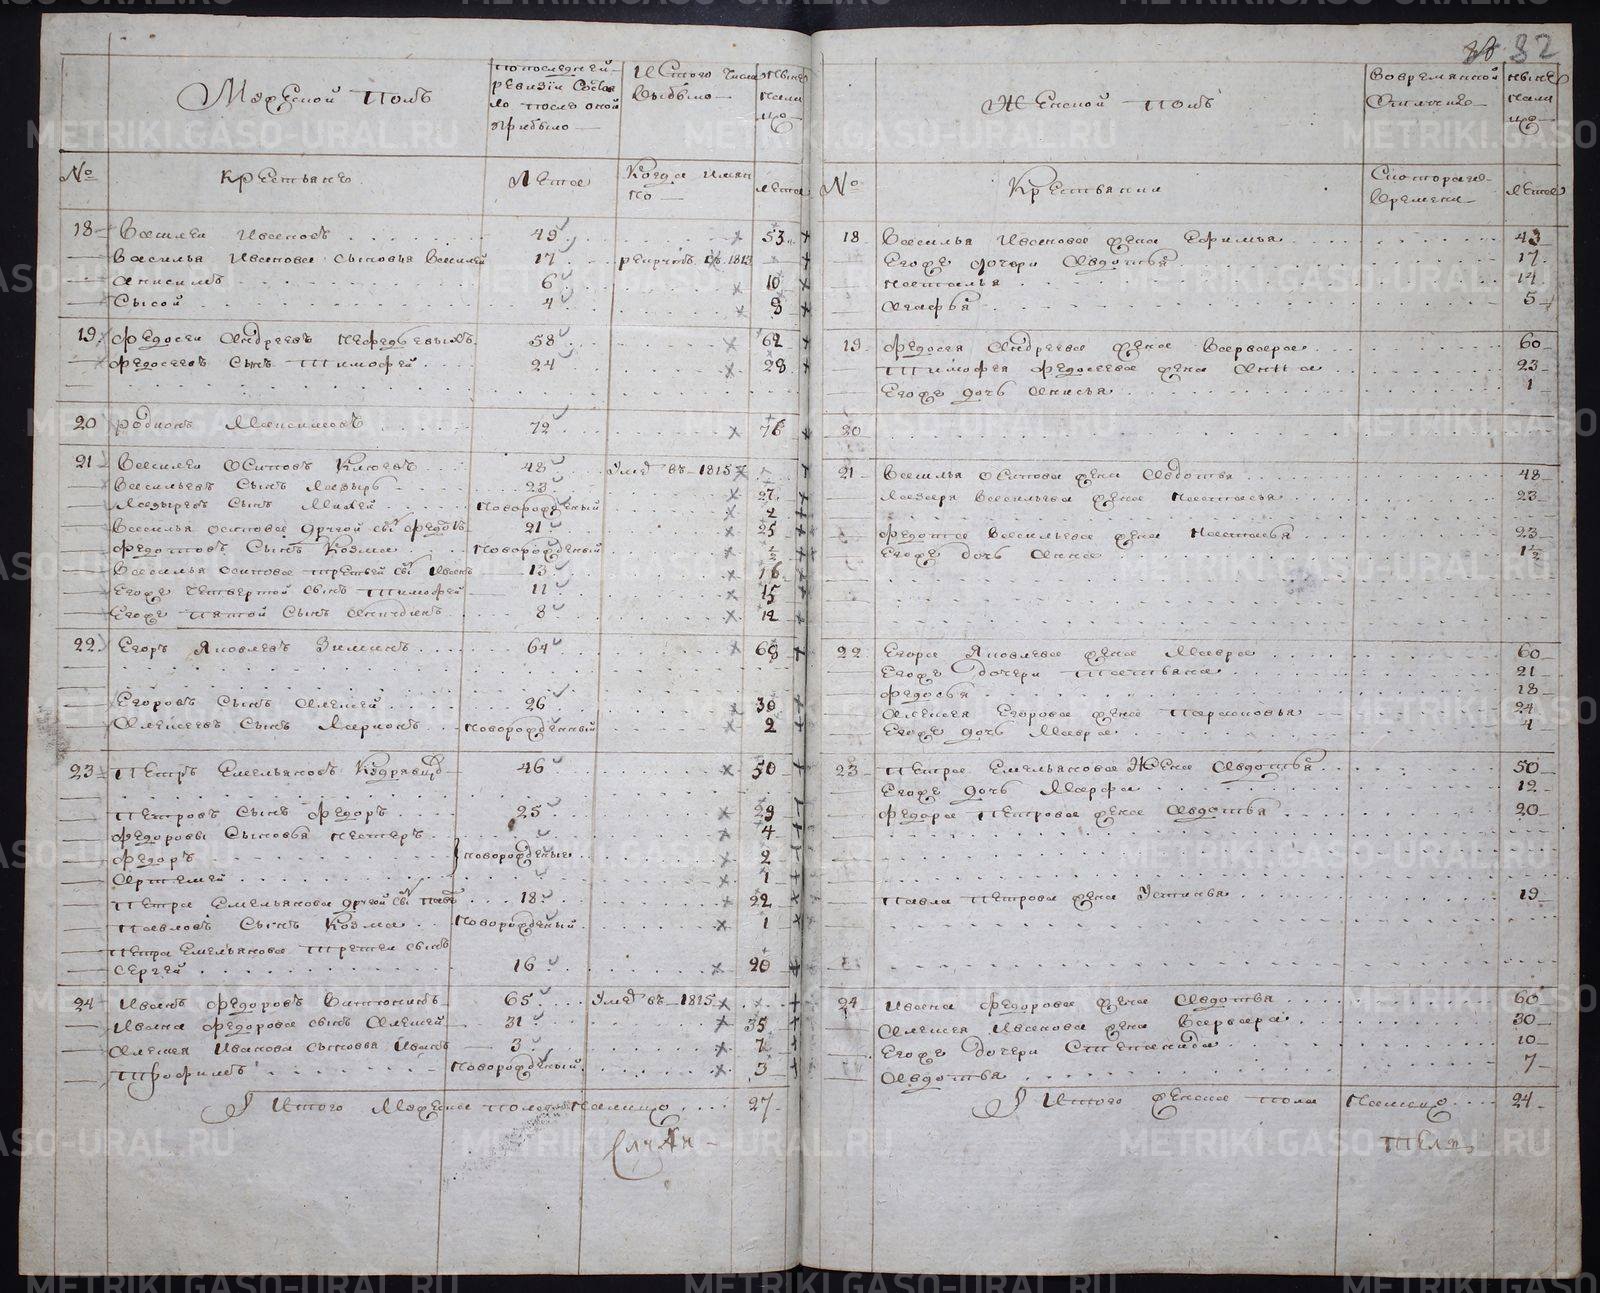 32
Мужеской полъ
по последней ревизии состояло и после оной прибыло
Изтого числа выбыло
ныне налицо
№
Крестьяне
Лета
Когда имянно
лета
18 Василеи Ивановъ 49 53
Василья Иванова сыновья Василей 17 рекрутъ въ 1813
Анисимъ 6 10
Сысой 4 8
19 Федосеи Андреевъ Нефедьевыхъ 58 62
Федосеевъ сынъ Тимофей 24 28
20 Родионъ Максимовъ 72 76
21 Василеи Осиповъ 48 умре въ 1815
Васильевъ сынъ Лазырь 23 27
Лазыревъ сынъ новорожденный
Василья Осипова другой сынъ Федотъ 21 25
Федотовъ сынъ Козма новорожденный ½
Василья Осипова третьей сынъ Иванъ 13 16
Егоже четвертой сынъ Тимофей 11 15
Егоже пятой сынъ 8 12
22 Егоръ Яковлевъ Зиминъ 64 68
Егоровъ сынъ Алексей 26 30
Алексеевъ сынъ Ларионъ новорожденный 2
23 Петръ Емельяновъ 46 50
Петровъ сынъ Федоръ 25 29
Федоровы сыновья Нестеръ 4
Федоръ новорожденные 2
Артемей 1
Петра Емельянова другой сынъ Павелъ 18 22
Павловъ сынъ Козма новорожденый 1
Петра Емельянова третей сынъ
Сергей 16 20
24 Иванъ Федоровъ 65 умре въ 1815
Ивана Федорова сынъ Алексей 31 35
Алексея Иванова сыновья Иванъ 3 7
Трофимъ новорожденный 3
Итого мужеска пола налицо 27
Женской полъ
во временной отлучке
ныне налицо
№
Крестьянки
С котораго времени
лета
18 Василья Иванова жена Ефимья 43
Егоже дочери Авдотья 17
Настасья 14
Агафья 5
19 Федосея Андреева жена Варвара 60
Тимофея Федосеева жена Анна 23
Егоже дочь Анисья 1
20
21 Василья Осипова жена Авдотья 48
Лазаря Васильева жена Настасья 23
Федота Васильева жена Настасья 23
Егоже дочь Анна 1½
22 Егора Яковлева жена Мавра 60
Егоже дочери Татьяна 21
Федосья 18
Алексея Егорова жена Парасковья 24
Егоже дочь Мавра 4
23 Петра Емельянова жена Авдотья 50
Егоже дочь Марфа 12
Федора Петрова жена Авдотья 20
Павла Петрова жена Устинья 19
24 Ивана Федорова жена Авдотья 60
Алексея Иванова жена Варвара 30
Егоже дочери Степанида 10
Авдотья 7
Итого женска пола налицо 24
METRIKI.GASO-URAL.RU